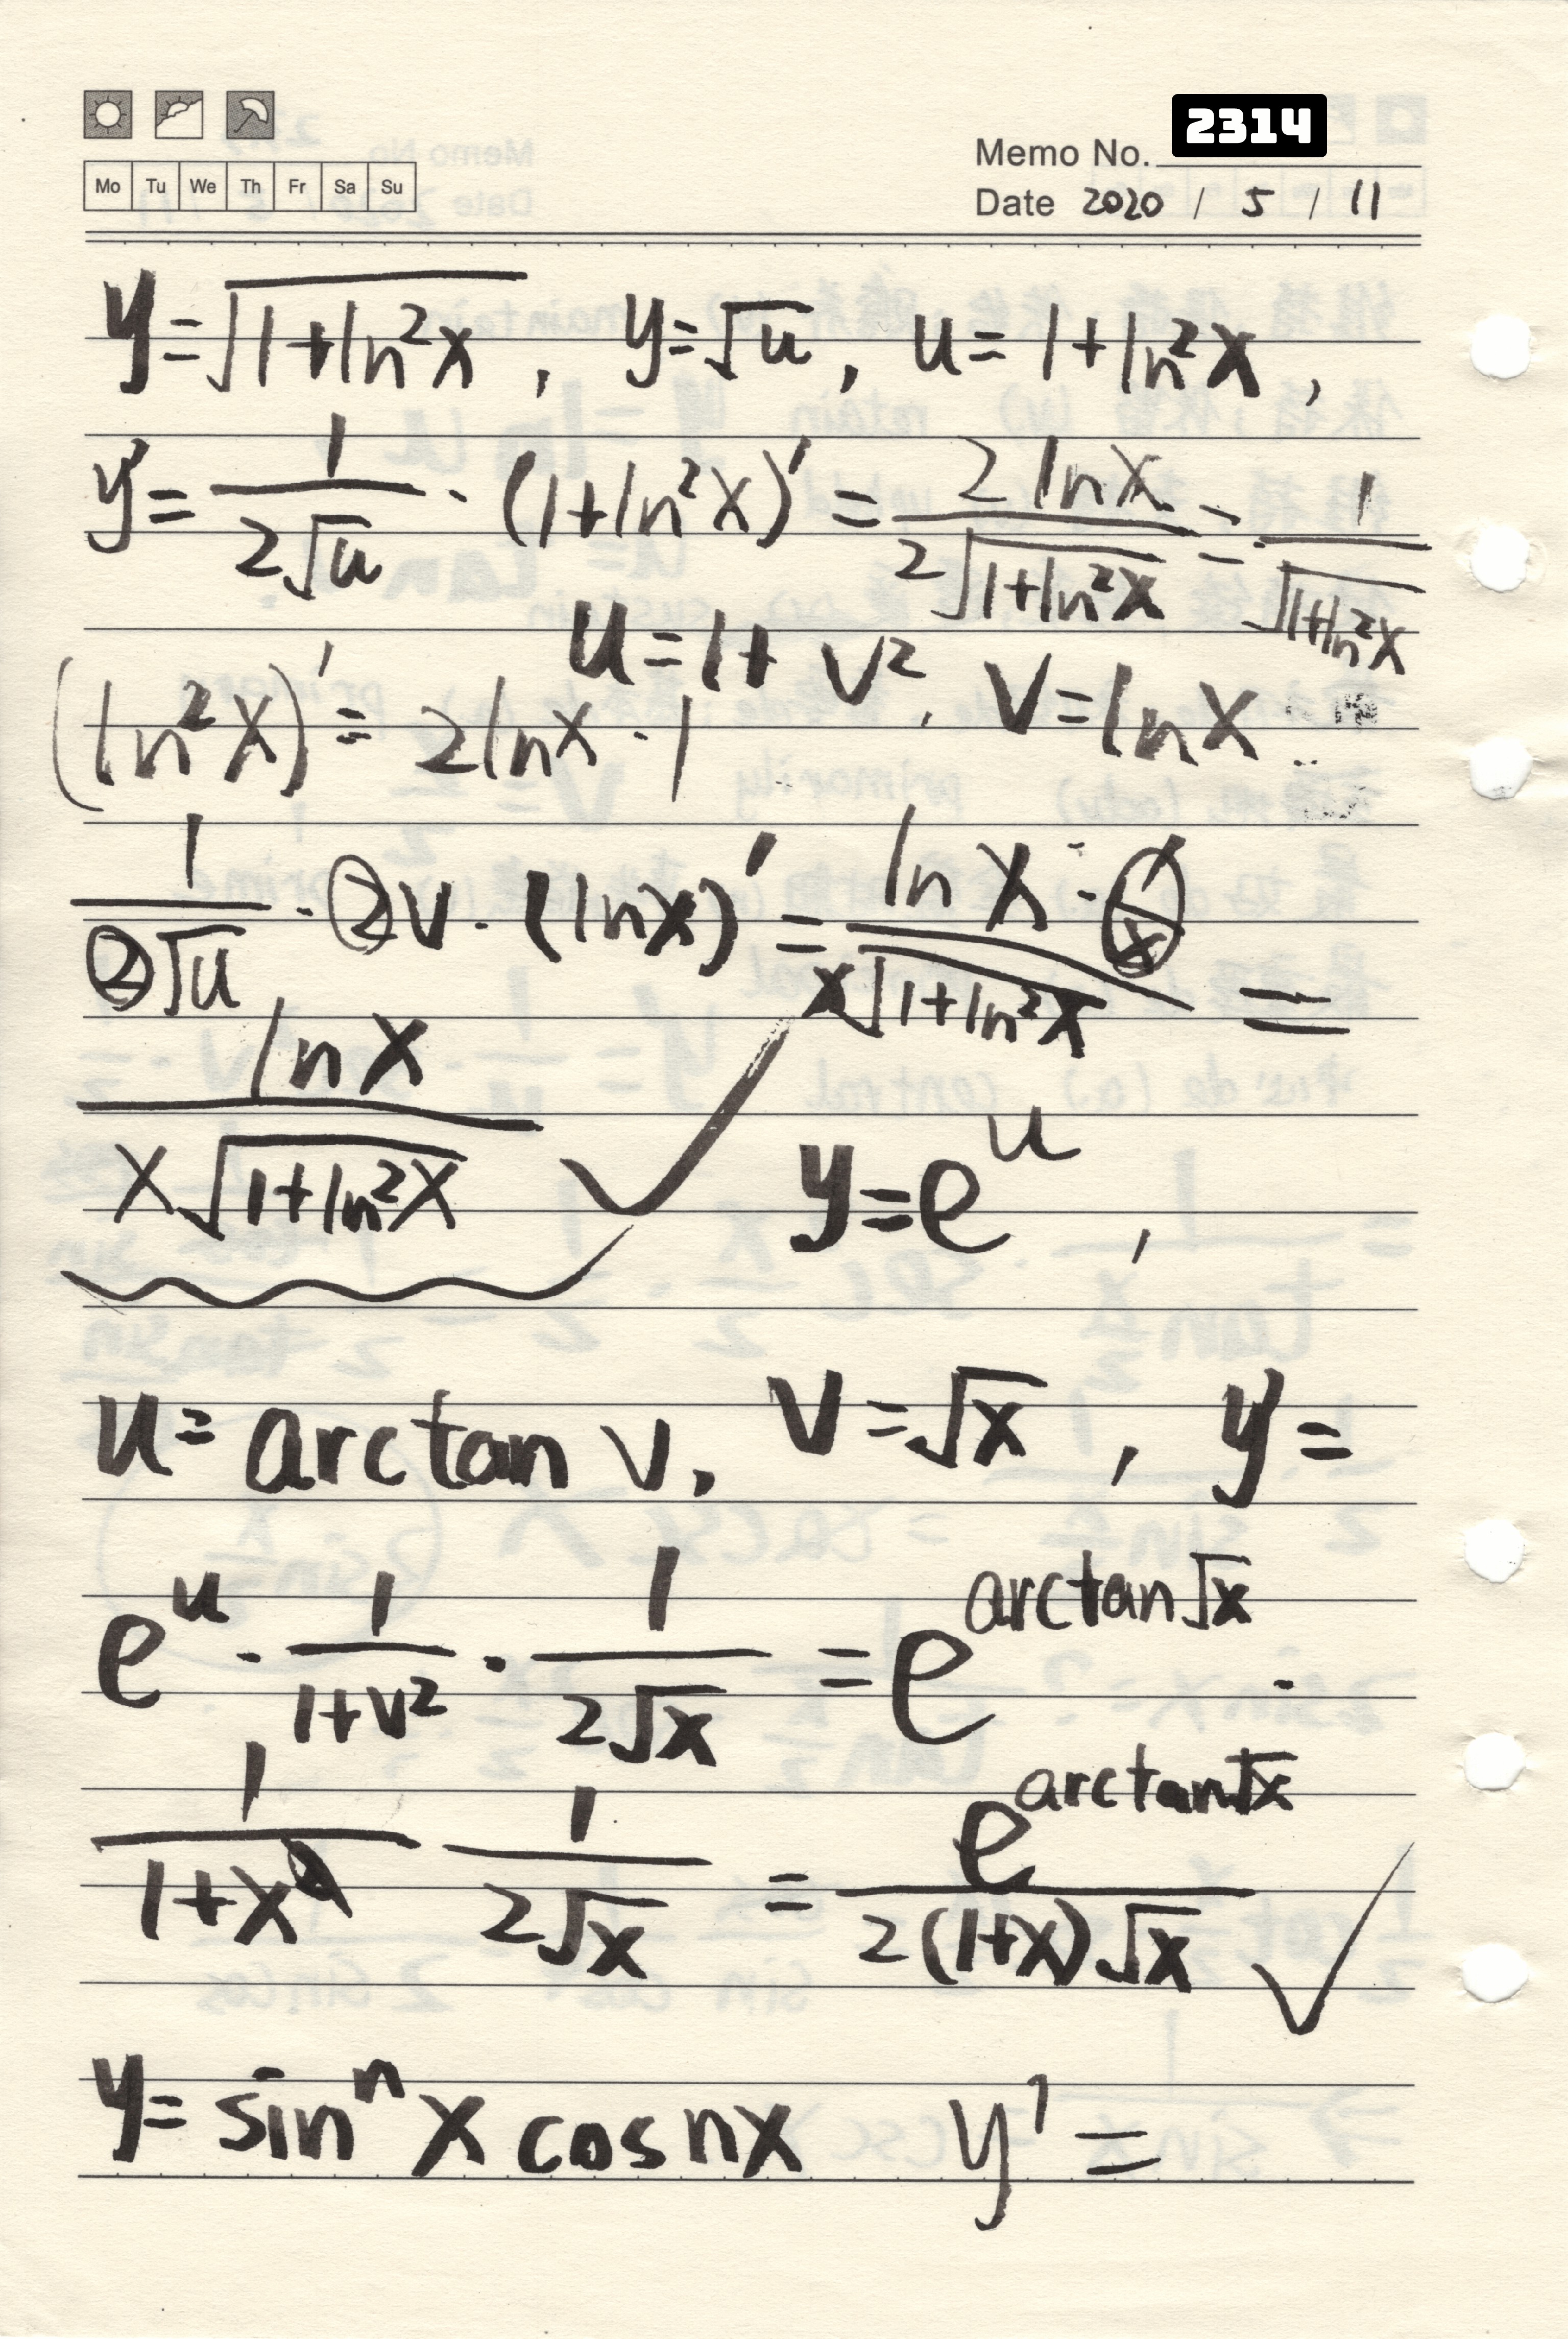 2314
Memo No.
Mo Tu We Th Fr Sa Su
Date 2020 / 5 / 11
y=√(1+ln²x), y=√u, u=1+ln²x,
y'= 1/(2√u) · (1+ln²x)' = 2lnx/(2√(1+ln²x)) = 1/√(1+ln²x)
u=1+v², v=lnx
(ln²x)'= 2lnx · 1
1/(2√u) · 2v · (lnx)' = (lnx · 1/x)/(x√(1+ln²x)) =
lnx/(x√(1+ln²x)) ✓ y=e^u,
u=arctan v, v=√x, y'=
e^u · 1/(1+v²) · 1/(2√x) = e^(arctan√x) ·
1/(1+x) 1/(2√x) = e^(arctan√x)/(2(1+x)√x) ✓
y=sinⁿx cosnx y'=